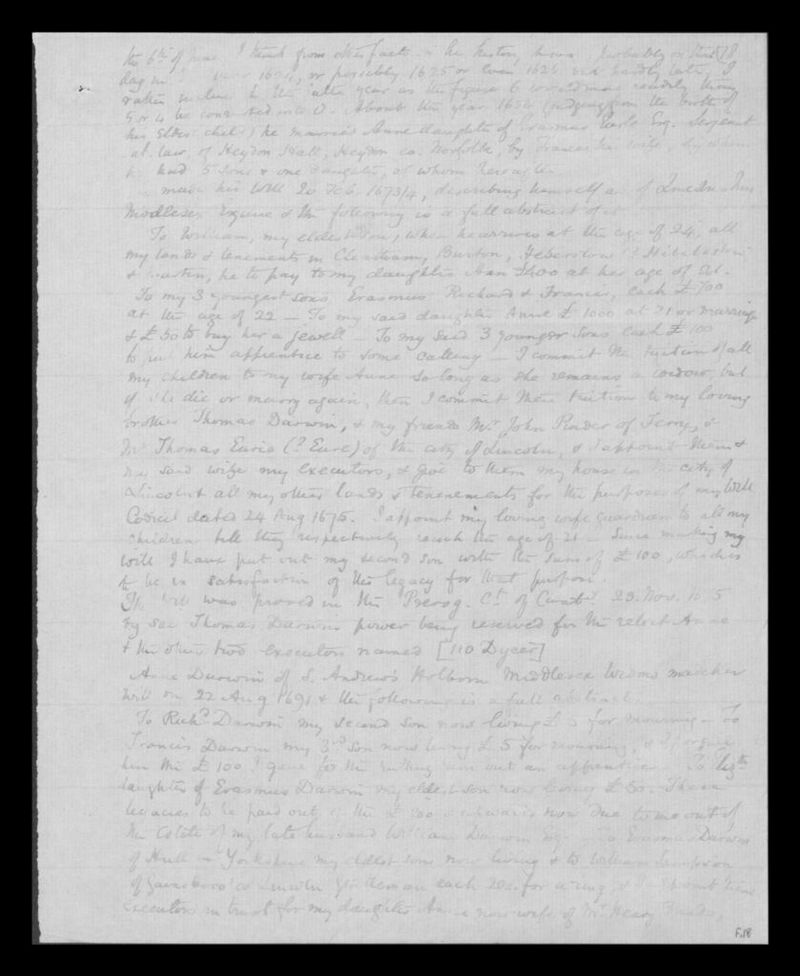 the 6th of June I think from other facts in the history
day in year 1624, or possibly 1625 or even 1626 I
rather to the latter year as the figure 6 would more readily
5 or 4 be into 0. About the year 1654 (judging from the birth of
his eldest child) he married Anne daughter of Erasmus Earle Esq. Serjeant
at law, of Heydon Hall, Heydon co. Norfolk, by Frances his wife, by whom
he had 5 sons & one daughter, of whom hereafter.
made his Will 20 Feb. 1673/4, describing himself as of
Middlesex Esquire & the following is a full abstract of it
To William, my eldest son, when he arrives at the age of 24, all
my lands & tenements in Cleatham, Burton,
& he to pay to my daughter Ann £400 at her age of 21.
To my 3 youngest sons, Erasmus Richard & Francis, each £700
at the age of 22 — To my said daughter Anne £1000 at 21 or marriage
& £50 to buy her a jewell — To my said 3 younger sons each £100
to put him apprentice to some calling — I commit the tuition of all
my children to my wife Anne so long as she remains a widow, but
if she die or marry again, then I commit their tuition to my loving
brother Thomas Darwin, & my friends Mr. John of &
Mr Thomas Eurie (? Eure) of the city of Lincoln, & I appoint them &
my said wife my executors, & give to them my house in the city of
Lincoln & all my other lands & tenements for the purposes of my Will
Codicil dated 24 Aug 1675. I appoint my loving wife guardian to all my
children till they respectively reach the age of 21 — Since making my
will I have put out my second son with the sum of £100, which is
to be in satisfaction of the legacy for that purpose.
The Will was proved in the Prerog. Ct. of 23. Nov.
by Thomas Darwin power being reserved for the relict Anne
& the other two executors named [110 Dycer]
Anne Darwin of S. Andrew's Holborn Middlesex Widow made her
will on 22 Aug 1691 & the following is a full abstract.
To Richd. Darwin my second son now living £5 for mourning — To
Francis Darwin my 3rd son now living £5 for mourning, &
him the £100 I gave for the putting him out an apprentice — To
daughter of Erasmus Darwin my eldest son now living £50. These
legacies to be paid out of the £ now due to me out of
the Estate of my late husband William Darwin Esq. — To Erasmus Darwin
of Hull in Yorkshire my eldest son now living & to William
of Gainsboro' co Lincoln Gentleman each 20s. for a ring & I appoint them
executors in trust for my daughter Anne now wife of Mr Henry
F.18